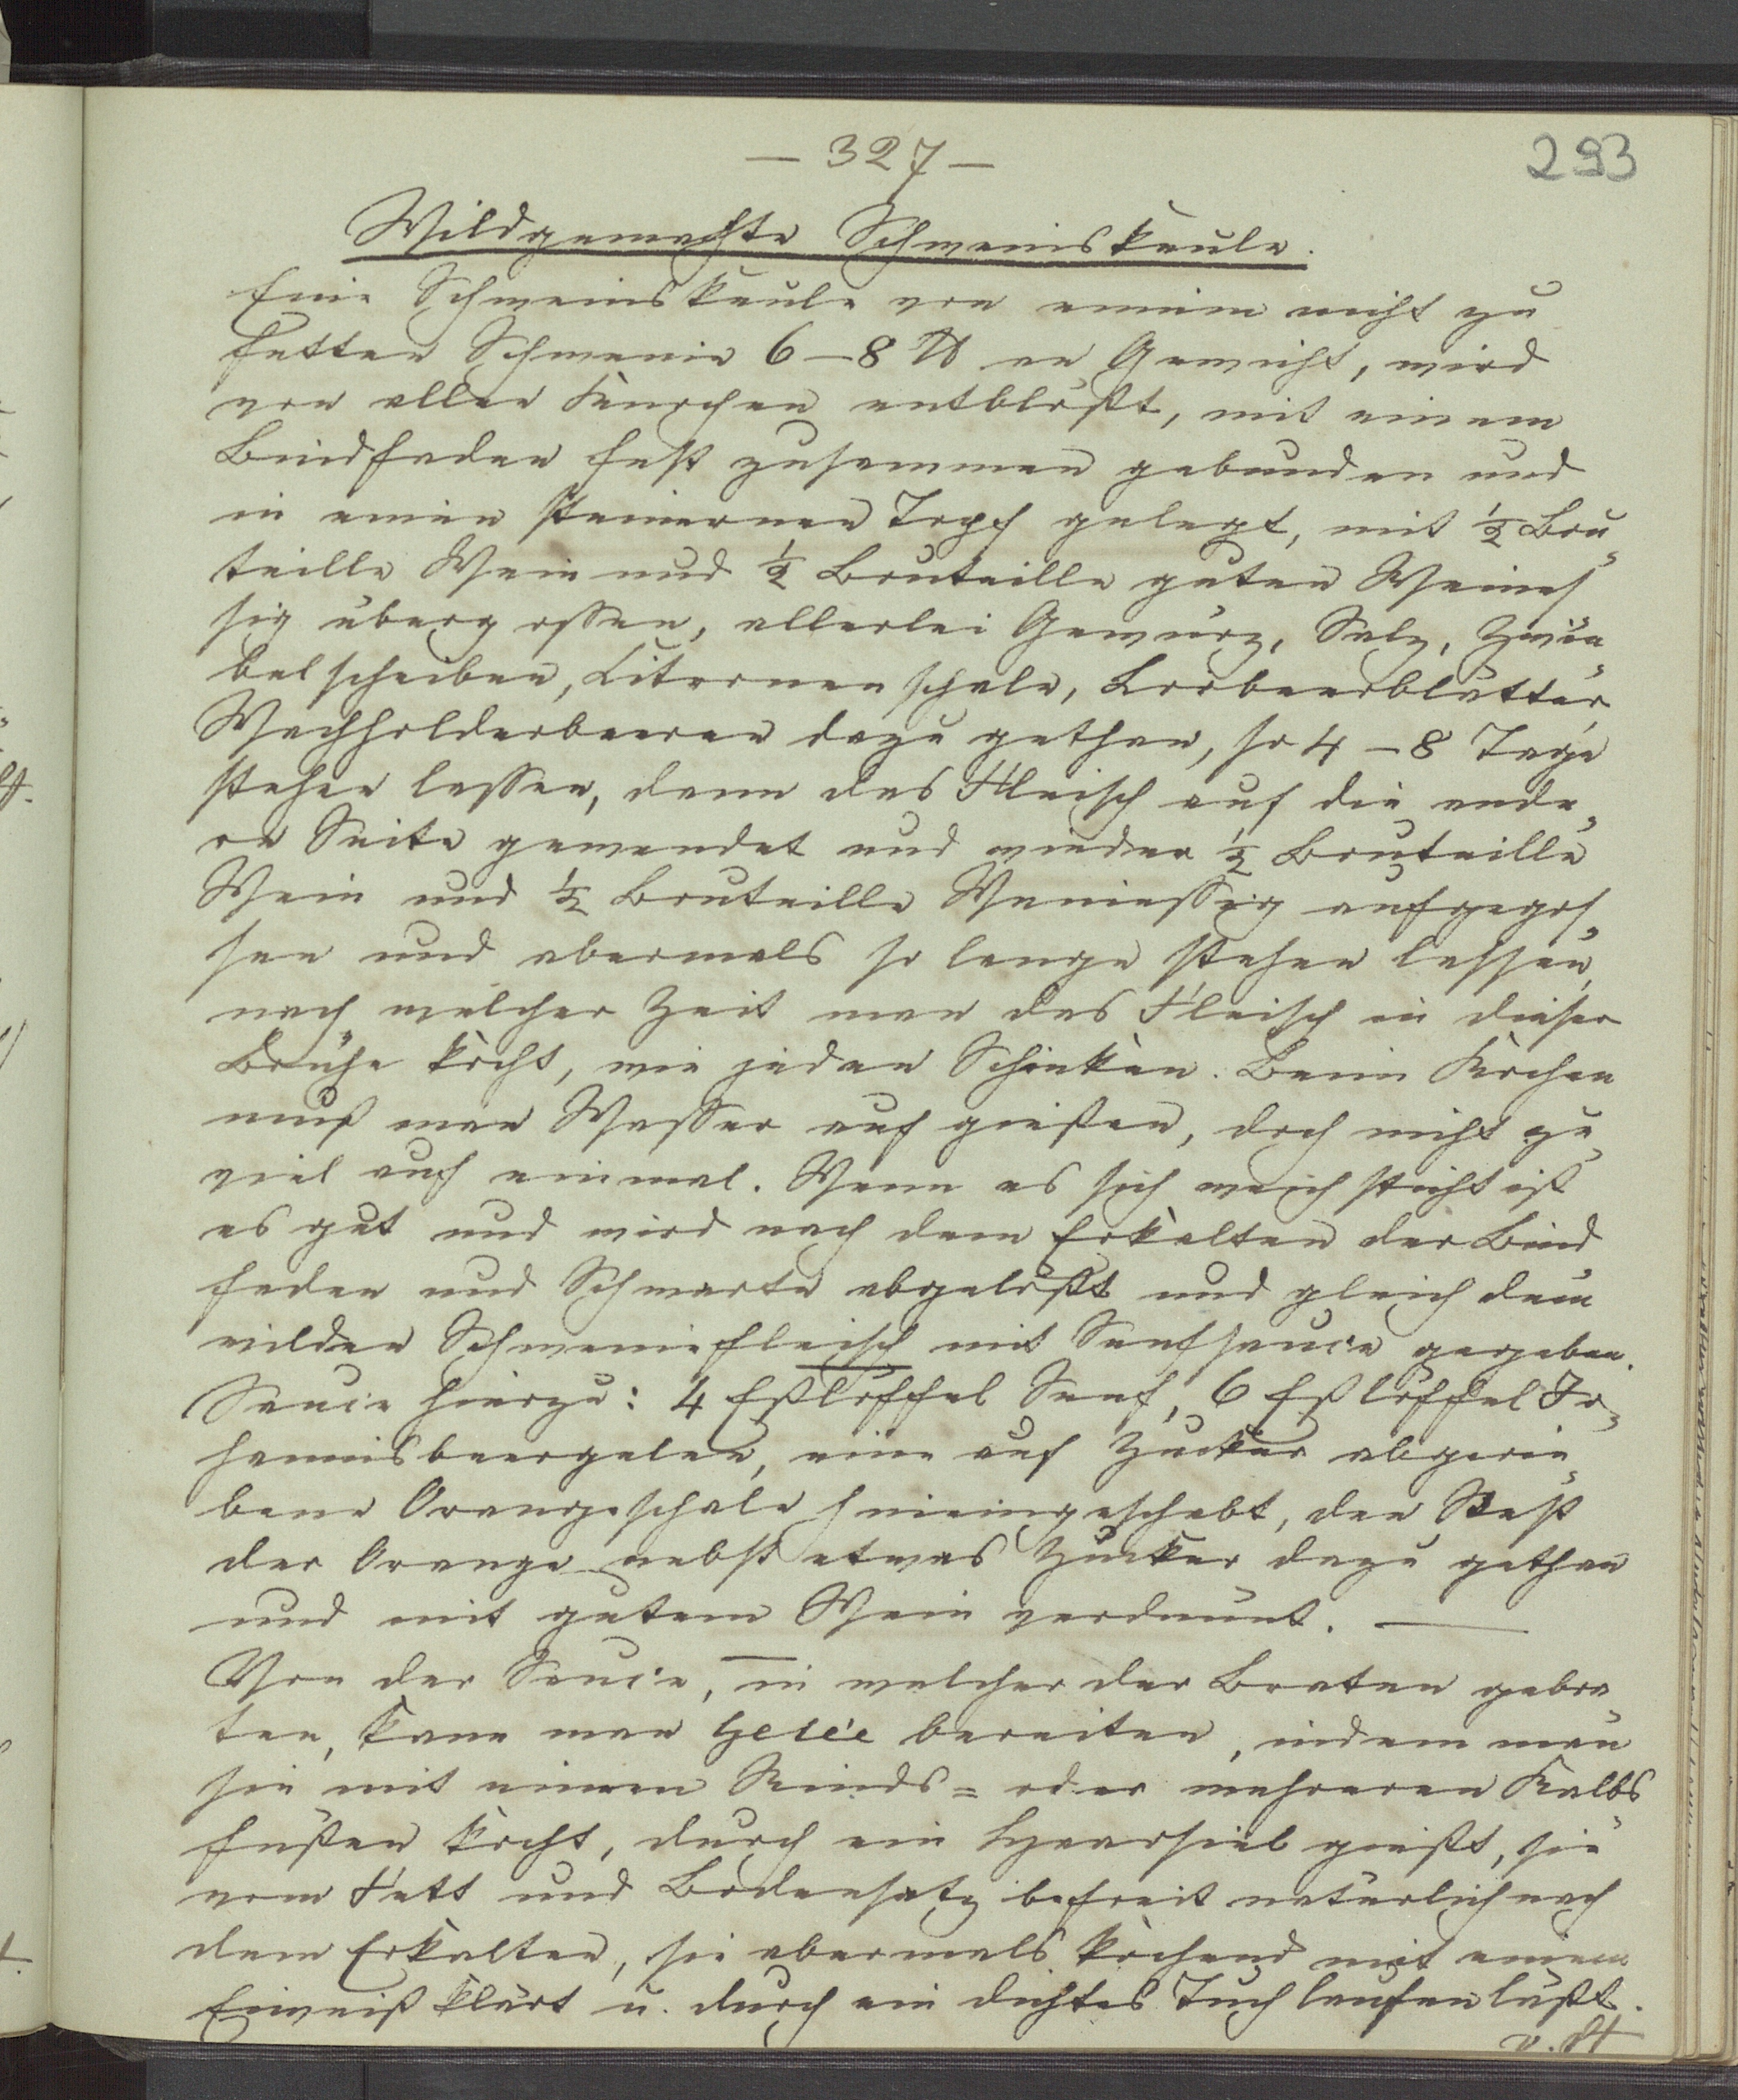 — 327 —
293
Wildgemachte Schweinskeule.
Eine Schweinskeule von einem nicht zu
fetten Schwein 6–8 ℔ an Gewicht, wird
von allen Knochen entblößt, mit einem
Bindfaden fest zusammen gebunden und
in einen steinernen Topf gelegt, mit ½ Bou„
teille Wein und ½ Bouteille guten Weines
sig übergossen, allerlei Gewürz, Salz, Zwie„
belscheiben, Citronenschale, Lorbeerblätter,
Wachholderbeeren dazu gethan, so 4–8 Tage
stehen lassen, dann das Fleisch auf die ande„
re Seite gewendet und wieder ½ Bouteille
Wein und ½ Bouteille Weinessig aufgegos„
sen und abermals so lange stehen lassen,
nach welcher Zeit man das Fleisch in dieser
Brühe kocht, wie jeden Schinken. Beim Kochen
muß man Wasser auf gießen, doch nicht zu„
viel auf einmal. Wenn es sich weich sticht ist
es gut und wird nach dem Erkalten der Bind„
faden und Schwarte abgelößt und gleich dem
wilden Schweinefleisch mit Senfsauce gegeben.
Sauce hierzu: 4 Eßlöffel Senf, 6 Eßlöffel Jo„
hannisbeergelee, eine auf Zucker abgerie„
bene Orangeschale hineingeschabt, den Rest
der Orange nebst etwas Zucker dazu gethan
und mit gutem Wein verdünnt. —
Von der Sauce, in welcher der Braten gebra„
ten, kann man Gelée bereiten, indem man
sie mit einem Rinds= oder mehreren Kalbs„
füßen kocht, durch ein Haarsieb gießt, sie
vom Fett und Bodensatz befreit natürlich nach
dem Erkalten, sie abermals kochend mit einem
Eiweiß klärt u. durch ein dichtes Tuch laufen läßt.
v. St